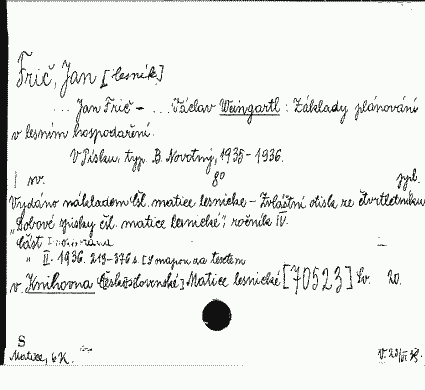 Frič, Jan [lesník]
... Jan Frič - ... Václav Weingartl: Základy plánování
v lesním hospodaření.
V Písku, typ. B. Novotný, 1935-1936.
1 sv. 8°
Vydáno nákladem Čsl. matice lesnické - Zvláštní otisk ze čtvrtletníku
„Sobové spisky čsl. matice lesnické", ročník IV.
část I
" II. 1936. 219-376 s. [S mapou za textem
v. Knihovna Československé] Matice lesnické [70523] Sv. 20.
S
Matice, 6K.
V. 23/VI 38.